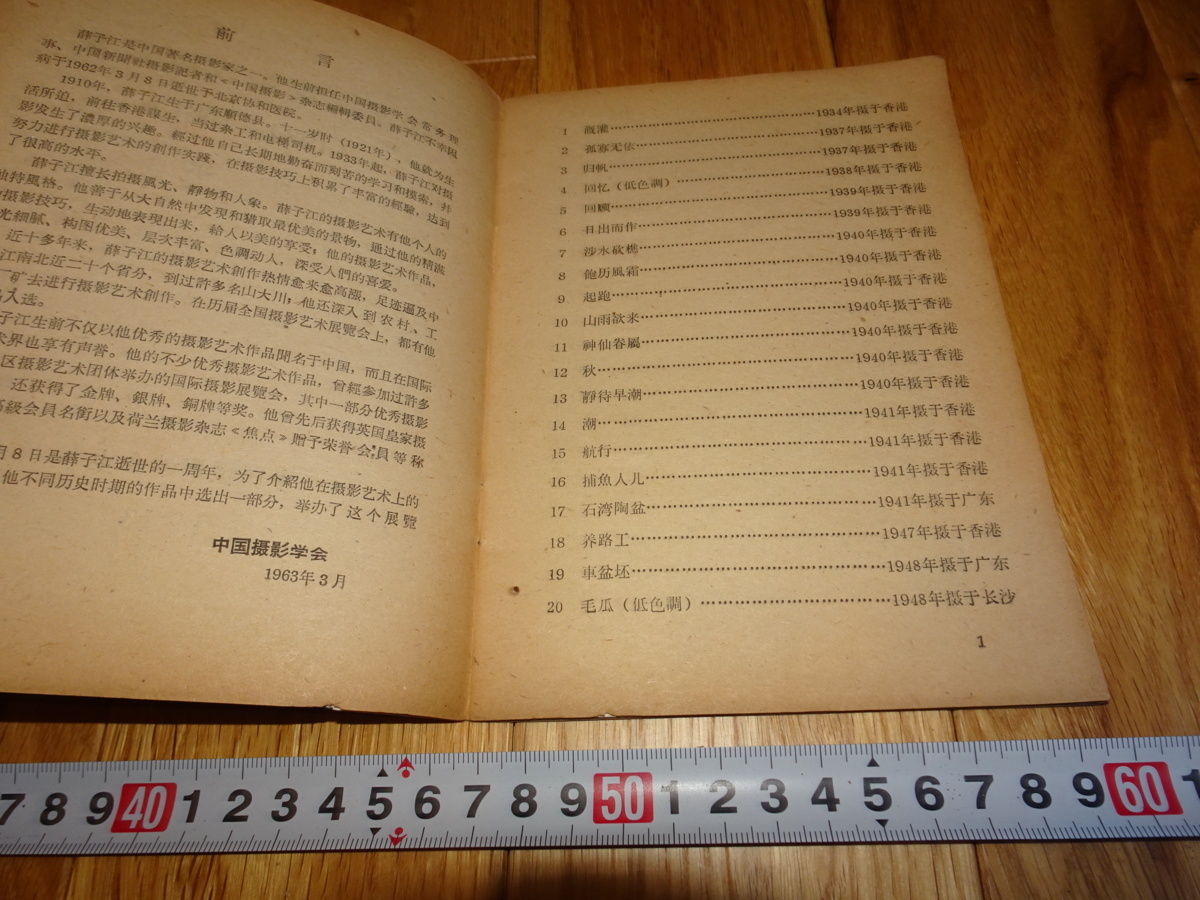 前言
薛子江是中国著名摄影家之一。他生前担任中国摄影学会常务理
事、中国新聞社摄影記者和《中国摄影》杂志編輯委員。薛子江不幸因
病于1962年3月8日逝世于北京协和医院。
1910年，薛子江生于广东順德县。十一岁时（1921年），他就为生
活所迫，前往香港謀生，当过杂工和电梯司机。1933年起，薛子江对摄
影发生了濃厚的兴趣。經过他自己长期地勤奋而刻苦的学习和摸索，幷
努力进行摄影艺术的創作实踐，在摄影技巧上积累了丰富的經驗，达到
了很高的水平。
薛子江擅长拍摄風光、靜物和人象。薛子江的摄影艺术有他个人的
独特風格。他善于从大自然中发現和猎取最优美的景物，通过他的精湛
摄影技巧，生动地表現出来，給人以美的享受；他的摄影艺术作品，
光細膩、构图优美、层次丰富、色調动人，深受人們的喜爱。
近十多年来，薛子江的摄影艺术創作热情愈来愈高漲，足迹遍及中
江南北近二十个省分，到过許多名山大川；他还深入到农村、工
厂矿去进行摄影艺术創作。在历届全国摄影艺术展覽会上，都有他
入选。
子江生前不仅以他优秀的摄影艺术作品聞名于中国，而且在国际
术界也享有声誉。他的不少优秀摄影艺术作品，曾經参加过許多
区摄影艺术团体举办的国际摄影展覽会，其中一部分优秀摄影
还获得了金牌、銀牌、銅牌等奖。他曾先后获得英国皇家摄
高級会員名銜以及荷兰摄影杂志《焦点》贈予荣誉会員等称
月8日是薛子江逝世的一周年，为了介紹他在摄影艺术上的
他不同历史时期的作品中选出一部分，举办了这个展覽
中国摄影学会
1963年3月
1 溉灌……1934年摄于香港
2 孤寡无依……1937年摄于香港
3 归帆……1937年摄于香港
4 回忆（低色調）……1938年摄于香港
5 回顾……1939年摄于香港
6 日出而作……1939年摄于香港
7 涉水砍樵……1940年摄于香港
8 飽历風霜……1940年摄于香港
9 起跑……1940年摄于香港
10 山雨欲来……1940年摄于香港
11 神仙眷屬……1940年摄于香港
12 秋……1940年摄于香港
13 靜待早潮……1940年摄于香港
14 潮……1941年摄于香港
15 航行……1941年摄于香港
16 捕魚人儿……1941年摄于香港
17 石湾陶盆……1941年摄于广东
18 养路工……1947年摄于香港
19 車盆坯……1948年摄于广东
20 毛瓜（低色調）……1948年摄于长沙
1
7 8 9 40 1 2 3 4 5 6 7 8 9 50 1 2 3 4 5 6 7 8 9 60 1